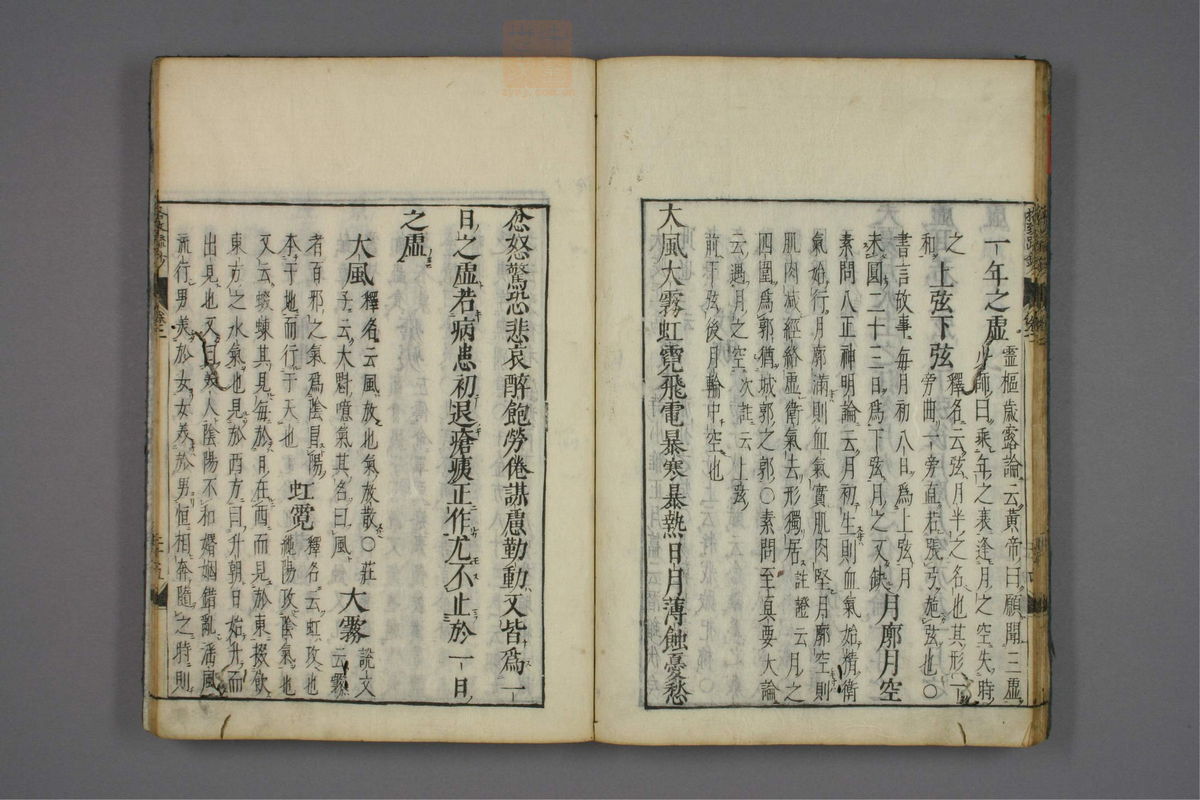 一年之虛 靈樞歲露論云黃帝曰願聞三虛
少師曰乘年之衰逢月之空失時
之
和 上弦下弦 釋名云弦月半之名也其形一
旁曲一旁直若張弓施弦也○
書言故事每月初八日爲上弦月
未圓二十三日爲下弦月之又缺 月廓月空
素問八正神明論云月初生則血氣始精衛
氣始行月廓滿則血氣實肌肉堅月廓空則
肌肉减經絡虛衛氣去形獨居 註證云月之
四圍爲郭猶城郭之郭○素問至眞要大論
云遇月之空 次註云上弦
前下弦後月輪中空也
大風大霧虹霓飛電暴寒暴熱日月薄蝕憂愁
忿怒驚恐悲哀醉飽勞倦謀慮勤動又皆爲一
日之虛若病患初退瘡痍正作尤不止於一日
之虛
大風 釋名云風放也氣放散○莊
子云大塊噫氣其名曰風 大霧 說文
云霧
者百邪之氣爲陰冒陽
本于地而行于天也 虹霓 釋名云虹攻也
純陽攻陰氣也
又云蝃蝀其見每於日在西而見於東掇飮
東方之水氣也見於西方曰升朝日始升而
出見也又曰美人陰陽不和婚姻錯亂淫風
流行男美於女女美於男恒相奔隨之時則